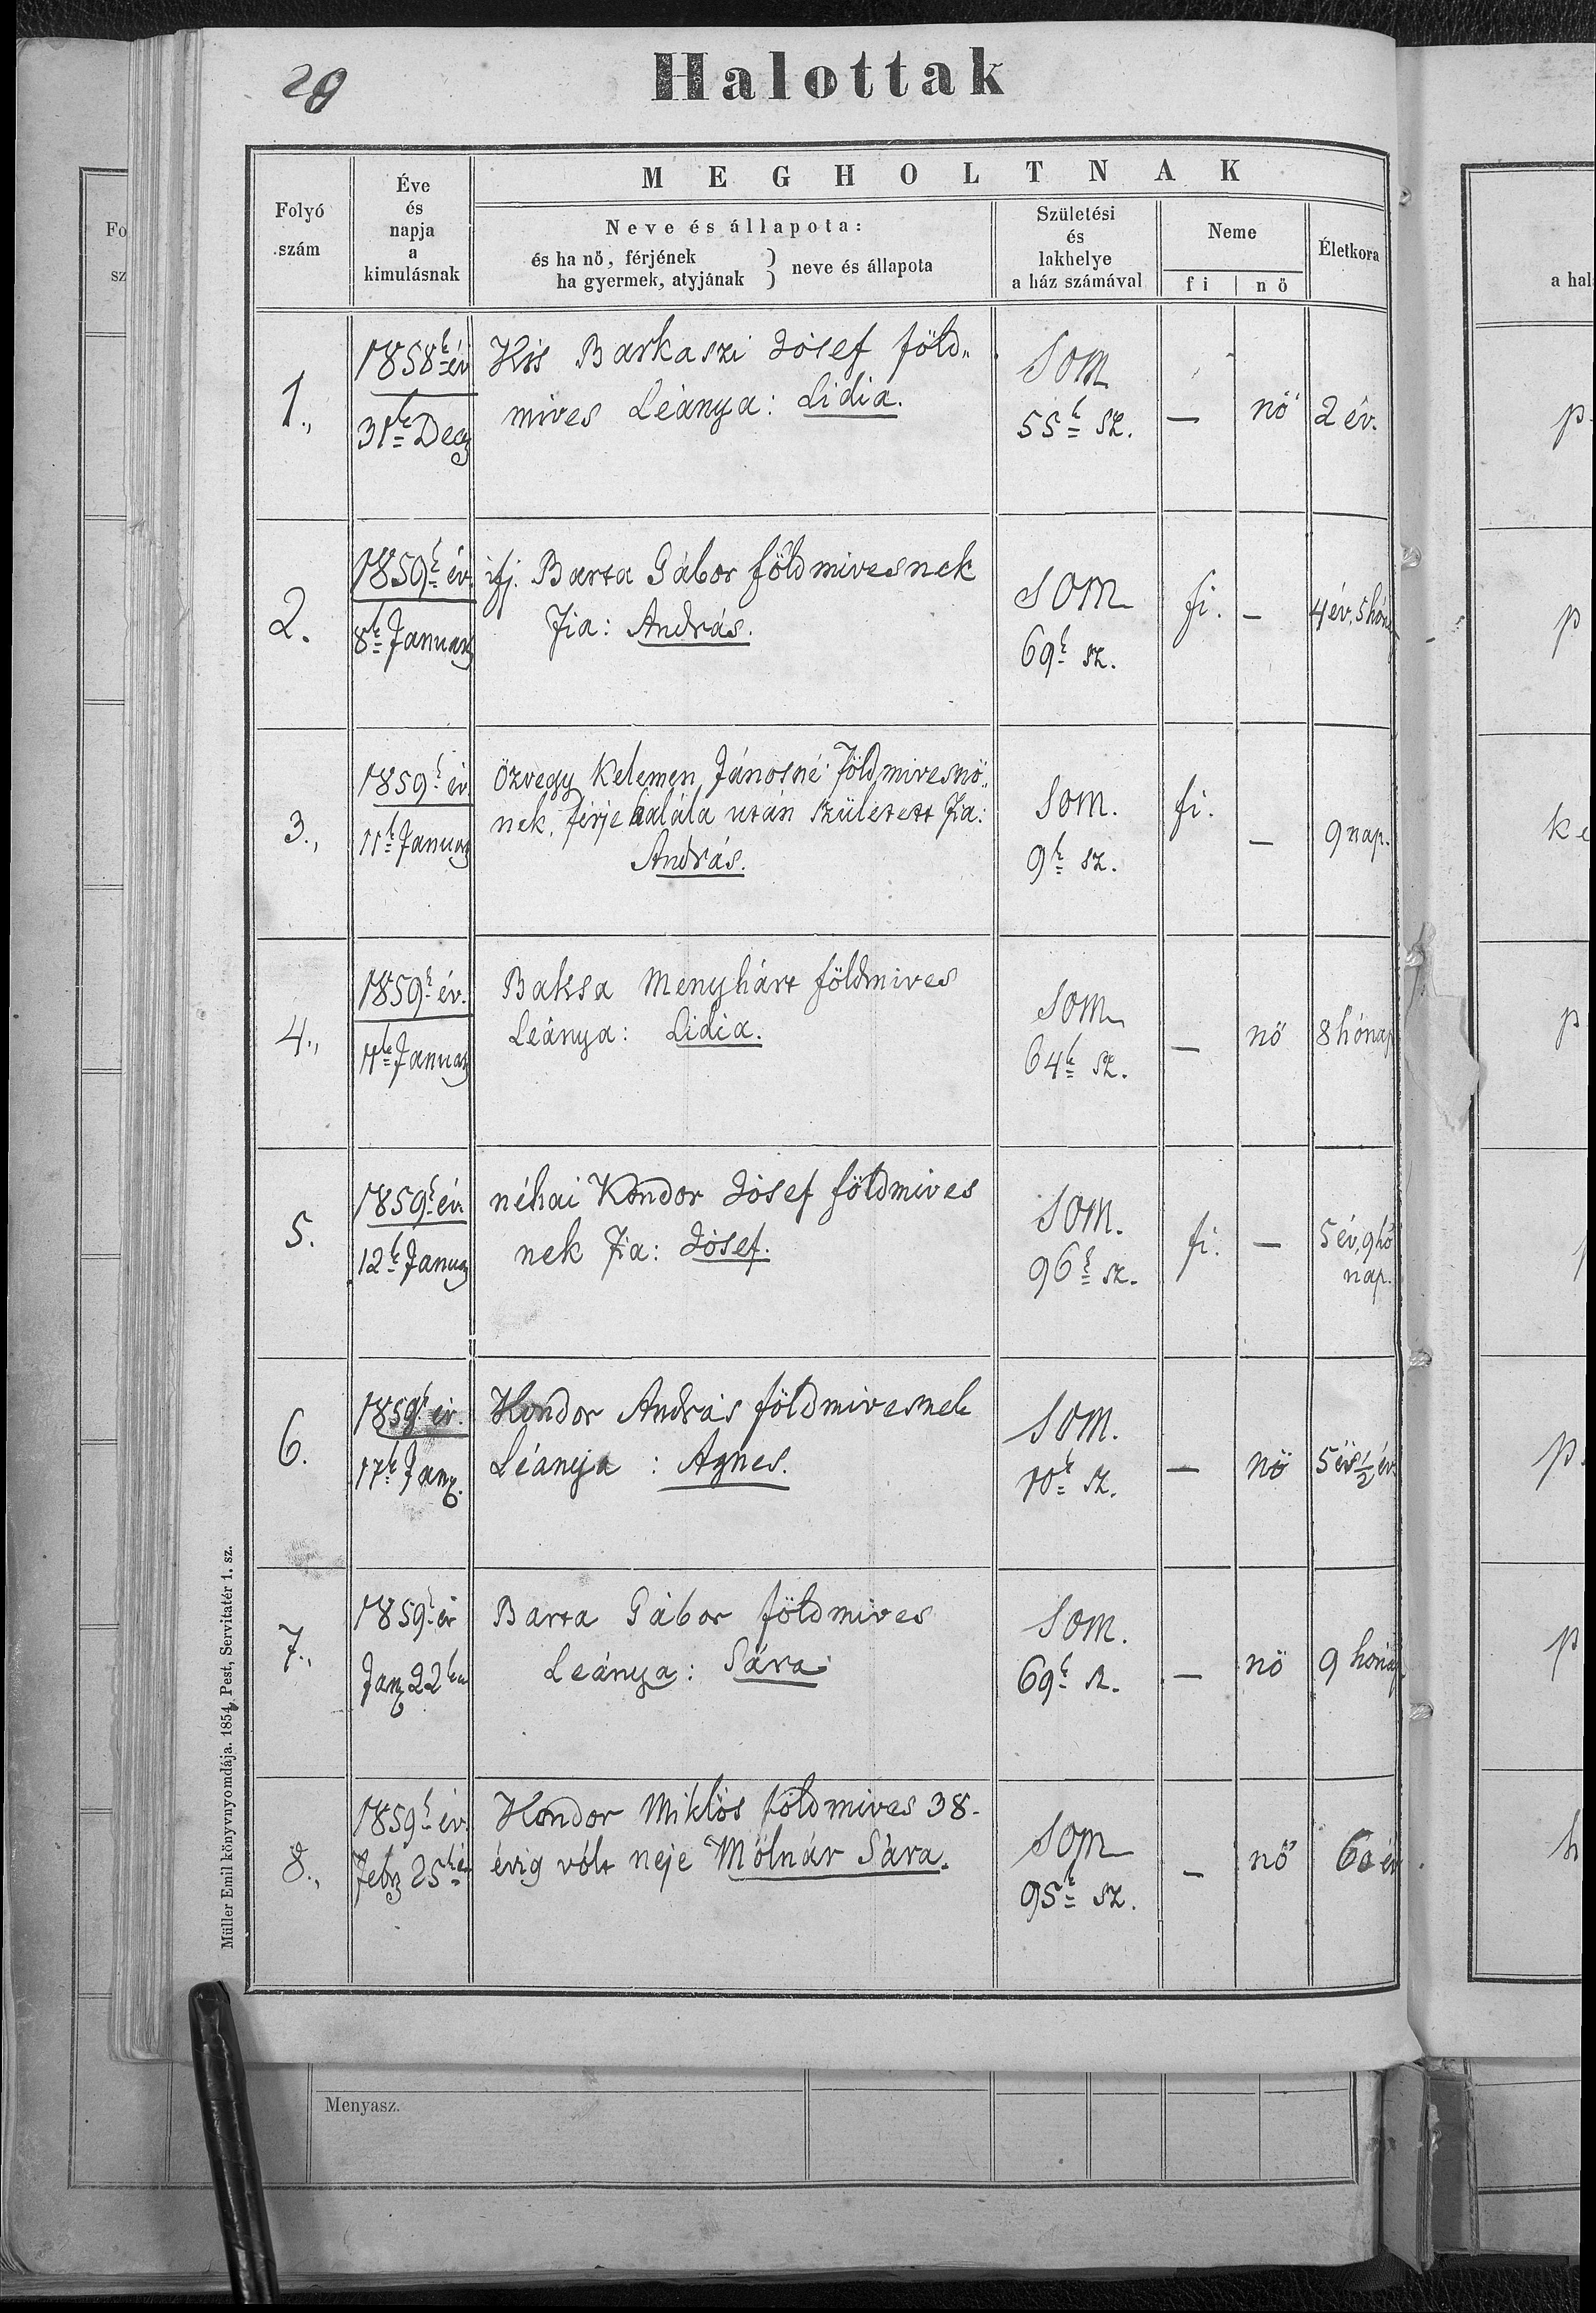 29
Halottak
MEGHOLTNAK
Folyó
szám
Éve
és
napja
a
kimulásnak
Neve és állapota:
és ha nö, férjének
ha gyermek, atyjának } neve és állapota
Születési
és
lakhelye
a ház számával
Neme
fi nö
Életkora
1.,
1858ˢ év
31ᵏ Decz
Kis Barkaszi Jósef föld„
mives Leánya: Lidia.
Som
55ᵏ sz.
— nö 2 év.
2.
1859ᵏ év.
8ᵏ Január
ifj. Barta Gábor földmivesnek
Fia: András.
Som
69ᵏ sz.
fi. — 4 év, 5 hónap
3.,
1859ᵏ év.
11ᵏ Január
Özvegy Kelemen Jánosné Földmivesnö„
nek, férje halála után született Fia:
András.
Som.
9ᵏ sz.
fi. — 9 nap.
4.,
1859ᵏ év.
Január
Baksa Menyhárt földmives
Leánya: Lidia.
Som
64ᵏ sz.
— nö 8 hónap
5.
1859ᵏ év.
12ᵏ Január
néhai Kondor Jósef földmives
nek Fia: Jósef.
Som.
96ᵏ sz.
fi. — 5 év, 9 hó
nap.
6.
1859ᵏ év.
17ᵏ Jan.
Kondor András földmivesnek
Léanya: Agnes.
Som.
70ᵏ sz.
— nö 5 és ½ év.
7.,
1859ᵏ év
Jan 22ᵏⁿ
Barta Gábor földmives
Leánya: Sára.
Som.
69ᵏ sz.
— nö 9 hónap
8.,
1859ᵏ év.
Febr 25ᵏ
Kondor Miklós földmives 38.
évig vólt neje Mólnár Sára.
Som
95ᵏ sz.
— nö 60 év
Müller Emil könyvnyomdája. 1854, Pest, Servitatér 1. sz.
Menyasz.